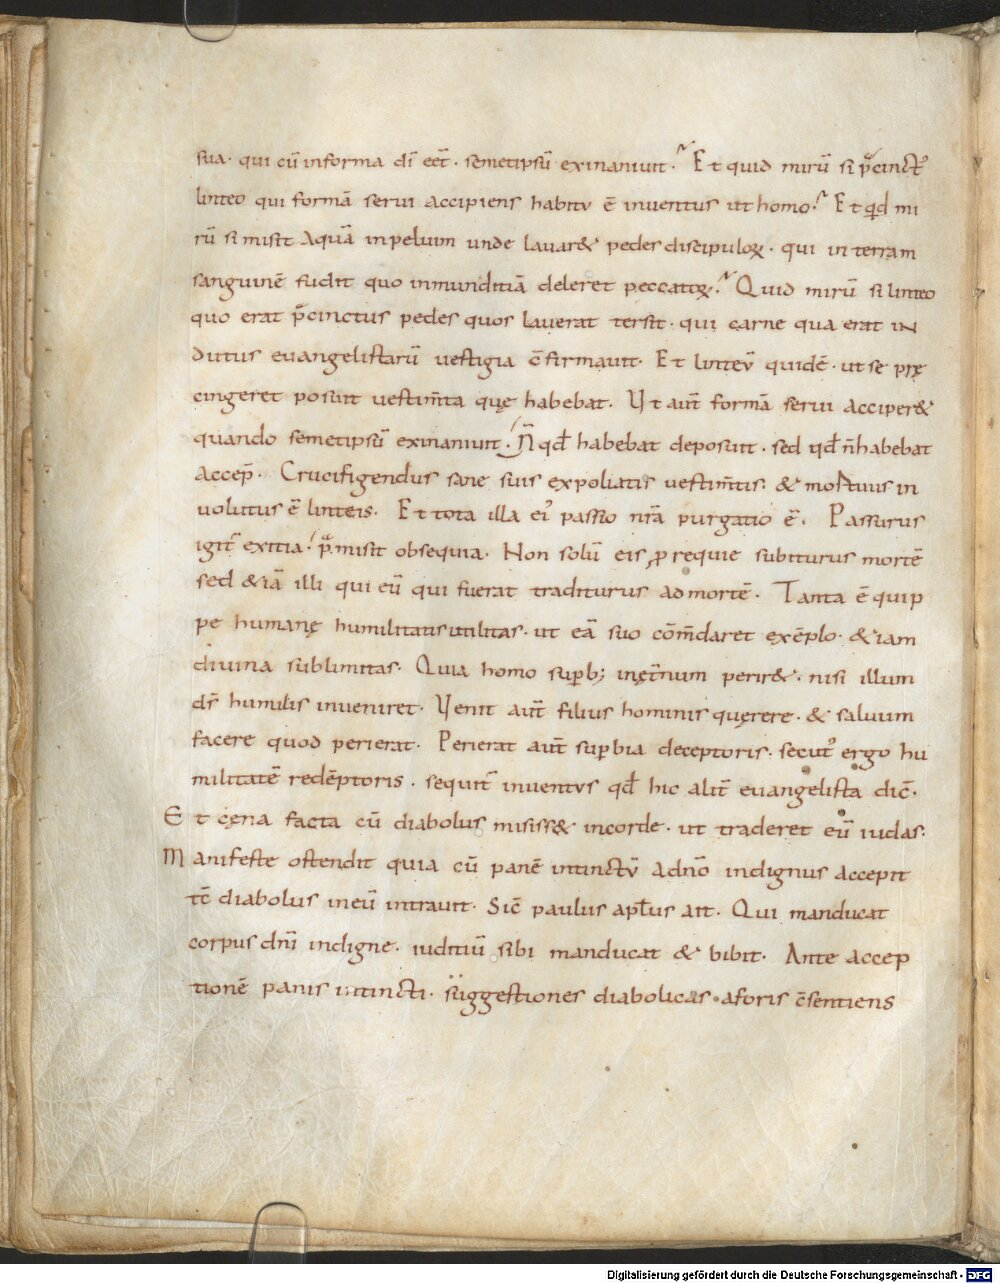 sua· qui cū informa dī eēt· semetipsū exinaniuit·̃ Et quid mirū si p̄cinct᷒
linteo qui formā serui accipiens habitu ē inuentus ut homo·̃ Et qd mi
rū si misit aquā inpeluim unde lauar& pedes discipuloꝝ· qui in terram
sanguinē fudit quo inmunditiā deleret peccatoꝝ·̃ Quid mirū si linteo
quo erat p̄cinctus pedes quos lauerat tersit· qui carne qua erat in
dutus euangelistarū uestigia c̄firmauit· Et linteū quidē· ut se prę
cingeret posuit uestim̄ta quę habebat. Ut aut̄ formā serui acciper&
quando semetipsū exinaniuit· n̄ qđ habebat deposuit· sed qđ n̄ habebat
accep̄· Crucifigendus sane suis expoliatis uestim̄tis· & mortuus in
uolutus ē linteis. Et tota illa ei᷒ passio nr̄a purgatio ē· Passurus
igit᷑ exitia· p̄misit obsequia· Non solū eis ꝓ requie subiturus mortē
sed &iā illi qui eū qui fuerat traditurus ad mortē· Tanta ē quip
pe humanę humilitatis utilitas· ut eā suo cōm̄daret exēplo· &iam
diuina sublimitas· Quia homo suꝑb; inęt̄num perir&· nisi illum
ds̄ humilis inueniret· Uenit aut̄ filius hominis quęrere· & saluum
facere quod perierat· Perierat aut̄ suꝑbia deceptoris· secut᷒ ergo hu
militatē redēptoris· sequit᷑ inuentus qđ hic alit̄ euangelista dic̄·
Et cęna facta cū diabolus misiss& incorde· ut traderet eū iudas·
Manifeste ostendit quia cū panē intinctū adnō indignus accepit
tc̄ diabolus ineū intrauit· Sic̄ paulus apłus ait· Qui manducat
corpus dnī indigne· iuditiū sibi manducat & bibit· Ante accep
tionē panis intincti· suggestiones diabolicas· aforis c̄sentiens
Digitalisierung gefördert durch die Deutsche Forschungsgemeinschaft - DFG